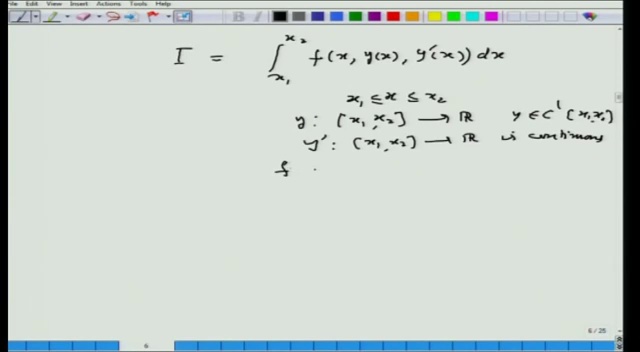 File Edit View Insert Actions Tools Help
I = ∫_{x₁}^{x₂} f(x, y(x), y'(x)) dx
x₁ ≤ x ≤ x₂
y : [x₁, x₂] → ℝ y ∈ C¹[x₁, x₂]
y' : [x₁, x₂] → ℝ is continuous
f
6 / 25
6